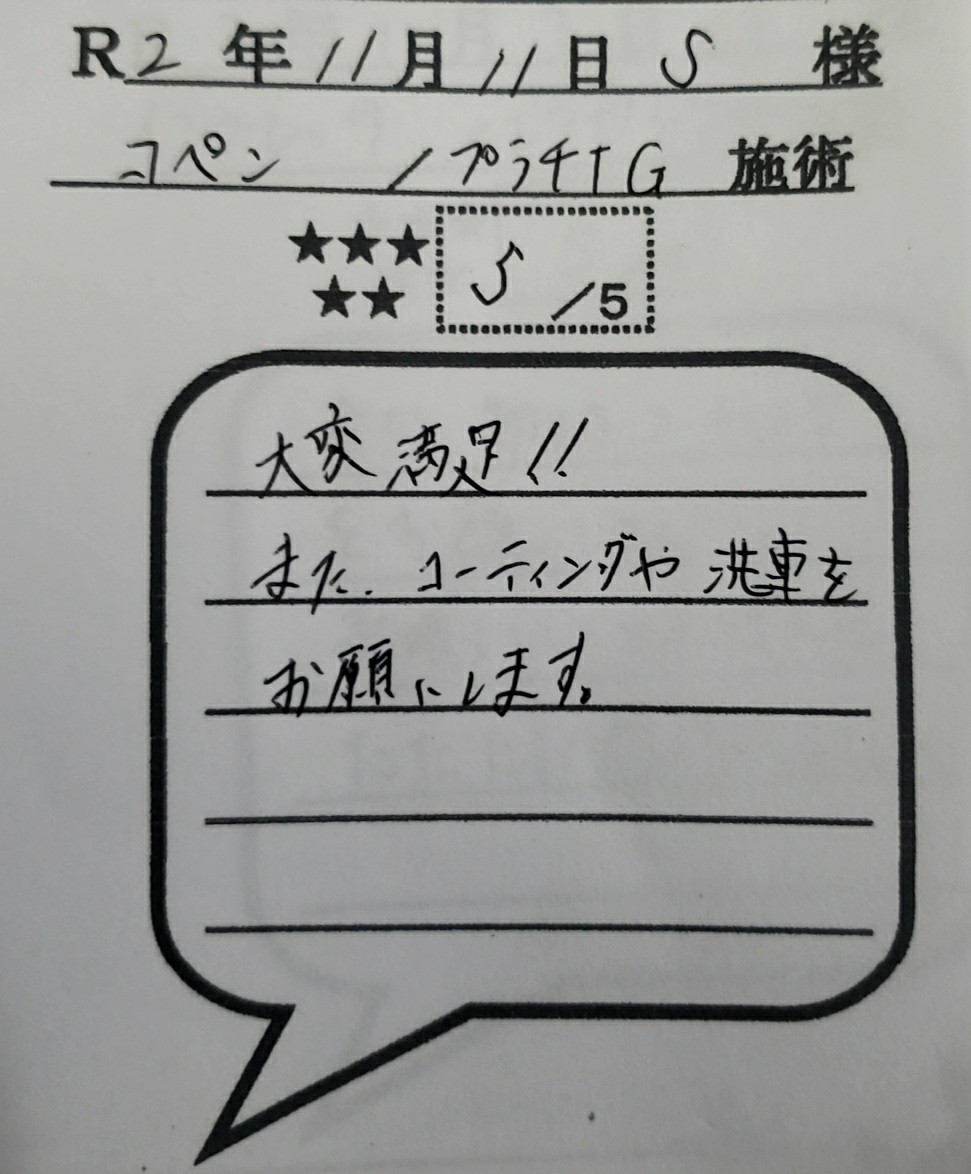 R2年11月11日 S 様
コペン /プラチナG 施術
★★★
★★ 5/5
大変満足!!
また、コーティングや洗車を
お願いします。